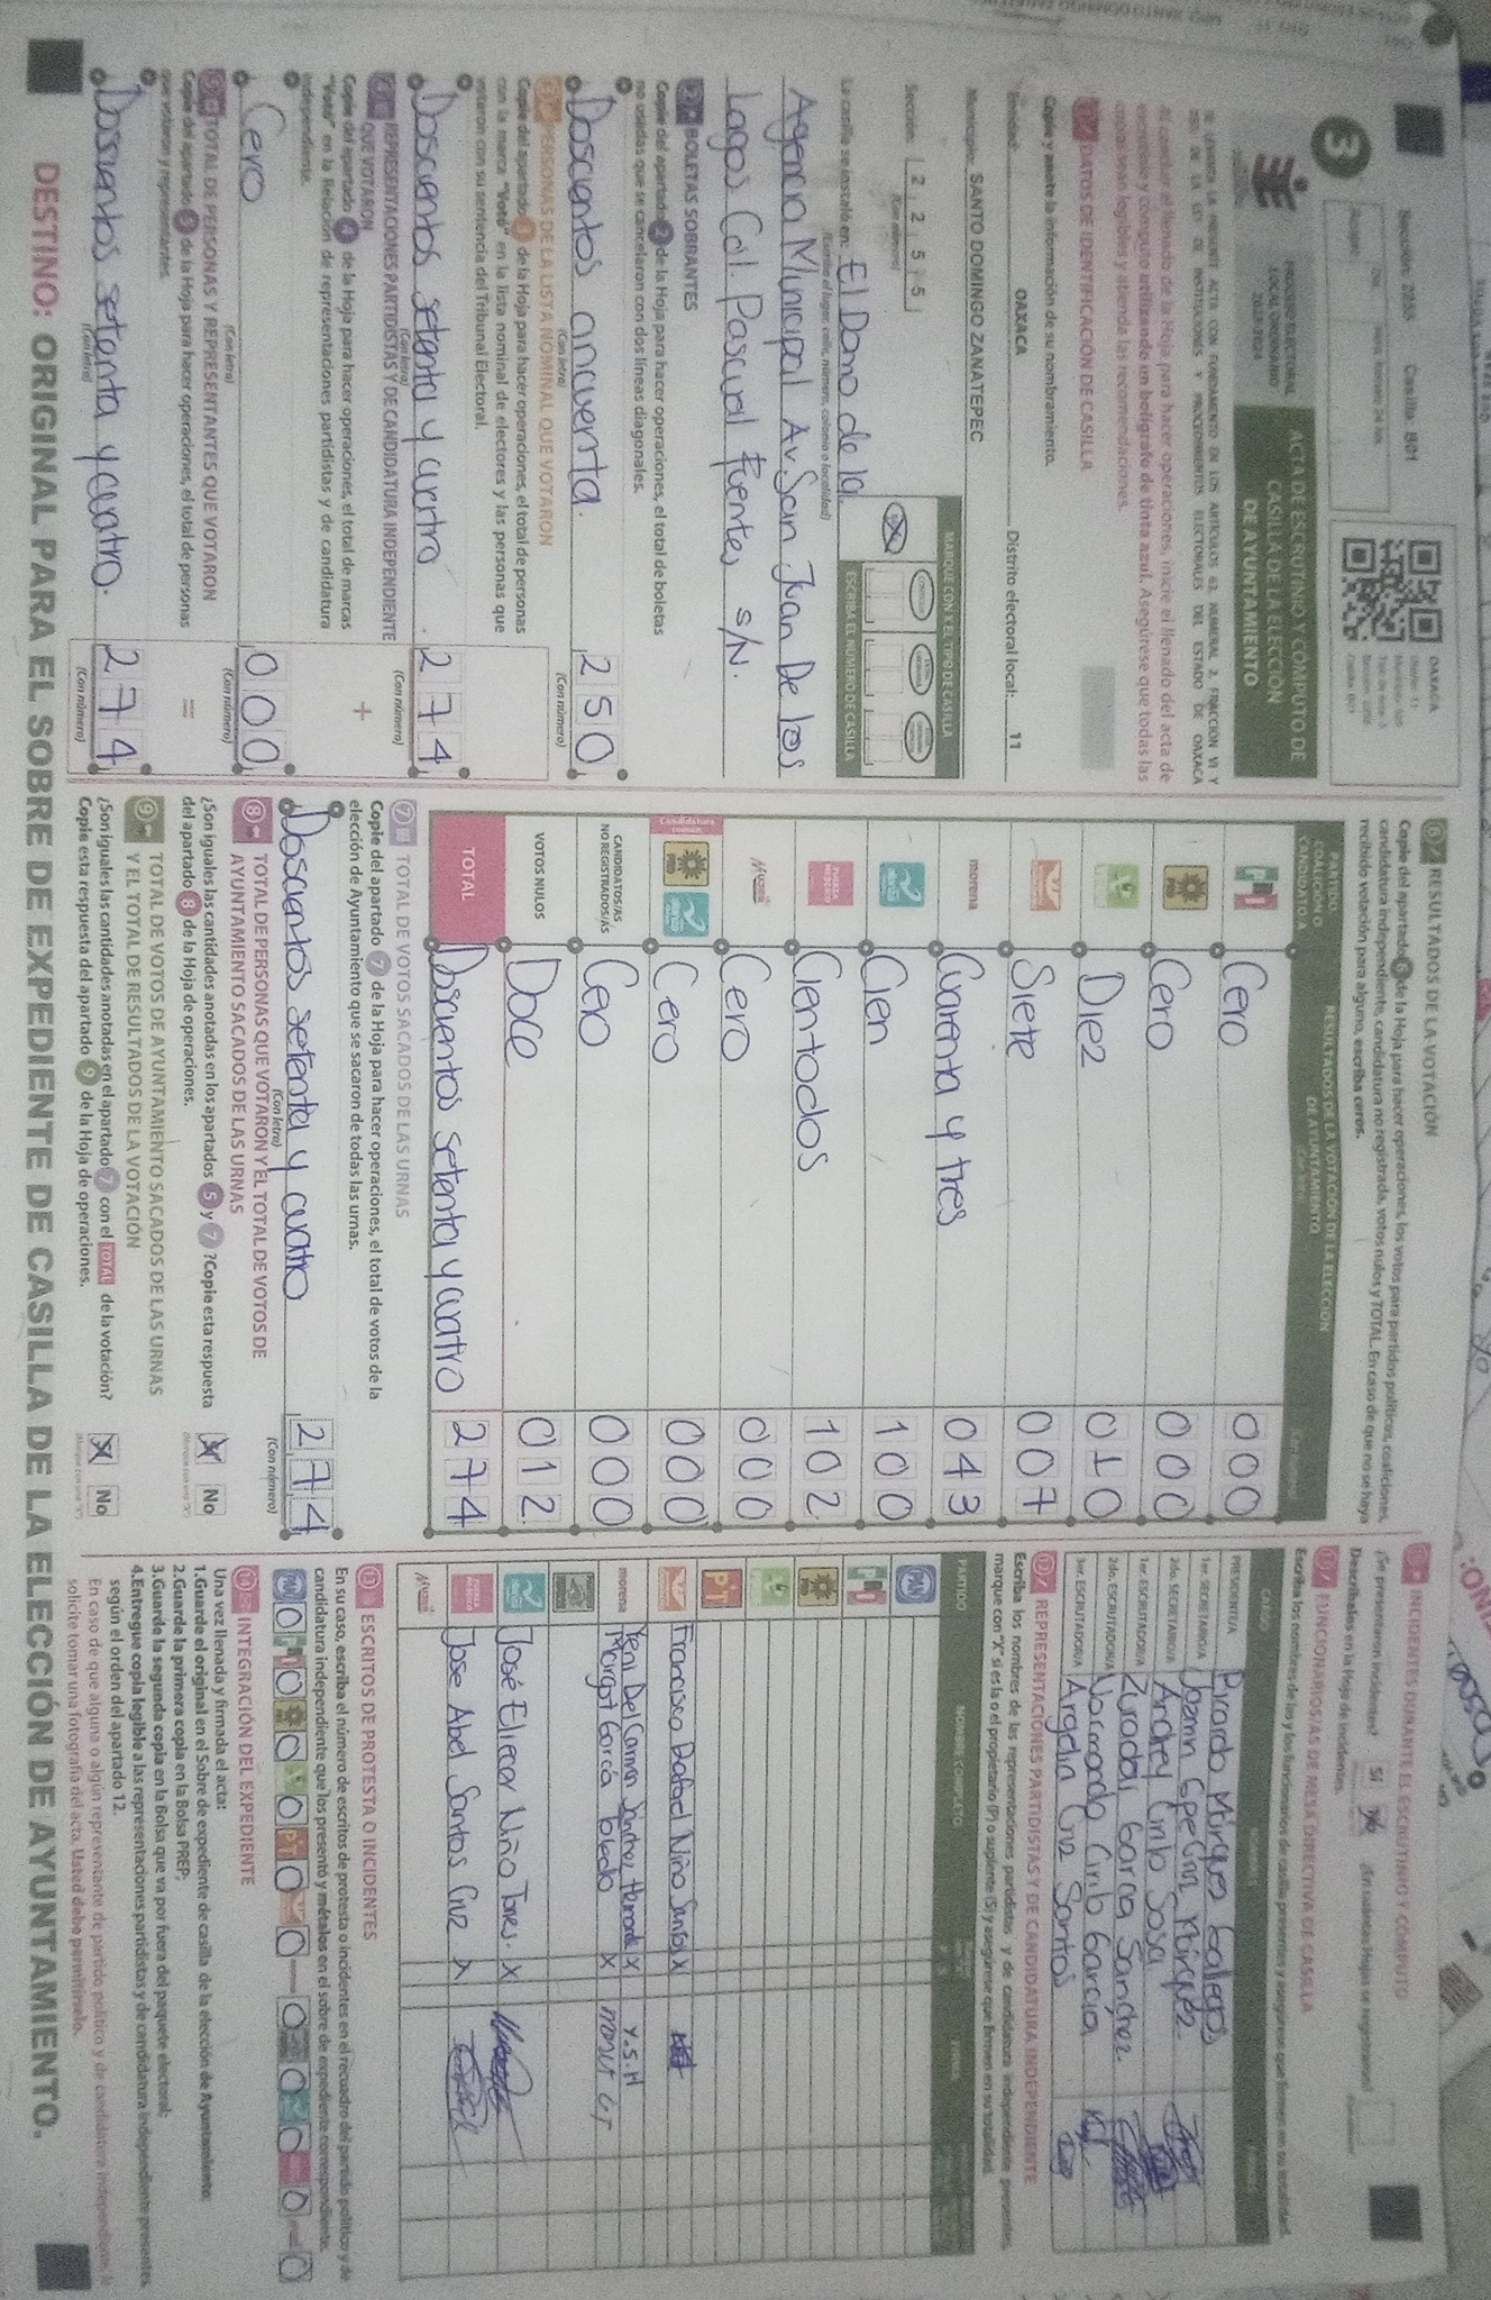 Sección: 2255 Casilla: B01
OAXACA
3
PROCESO ELECTORAL
LOCAL ORDINARIO
2023-2024
ACTA DE ESCRUTINIO Y CÓMPUTO DE
CASILLA DE LA ELECCIÓN
DE AYUNTAMIENTO
SE LEVANTA LA PRESENTE ACTA CON FUNDAMENTO EN LOS ARTÍCULOS 62, NUMERAL 2, FRACCIÓN VI Y
DE LA LEY DE INSTITUCIONES Y PROCEDIMIENTOS ELECTORALES DEL ESTADO DE OAXACA
Al concluir el llenado de la Hoja para hacer operaciones, inicie el llenado del acta de
escrutinio y cómputo utilizando un bolígrafo de tinta azul. Asegúrese que todas las
copias sean legibles y atienda las recomendaciones.
1 DATOS DE IDENTIFICACIÓN DE CASILLA
Copie y anote la información de su nombramiento.
Entidad: OAXACA Distrito electoral local: 11
Municipio: SANTO DOMINGO ZANATEPEC
Sección: 2 2 5 5
(Con número)
MARQUE CON X EL TIPO DE CASILLA
ESCRIBA EL NÚMERO DE CASILLA
La casilla se instaló en: El Domo de la
(Escriba el lugar: calle, número, colonia o localidad)
Agencia Municipal Av. San Juan De los
Lagos Col. Pascual Fuentes s/N.
2 BOLETAS SOBRANTES
Copie del apartado 2 de la Hoja para hacer operaciones, el total de boletas
no usadas que se cancelaron con dos líneas diagonales.
Doscientos cincuenta. 250
(Con letra) (Con número)
3 PERSONAS DE LA LISTA NOMINAL QUE VOTARON
Copie del apartado 3 de la Hoja para hacer operaciones, el total de personas
con la marca "Votó" en la lista nominal de electores y las personas que
votaron con su sentencia del Tribunal Electoral.
Doscientos setenta y cuatro. 274
(Con letra) (Con número)
4 REPRESENTACIONES PARTIDISTAS Y DE CANDIDATURA INDEPENDIENTE
QUE VOTARON
Copie del apartado 4 de la Hoja para hacer operaciones, el total de marcas
"Votó" en la Relación de representaciones partidistas y de candidatura
independiente.
+
Cero 000
(Con letra) (Con número)
5 TOTAL DE PERSONAS Y REPRESENTANTES QUE VOTARON
Copie del apartado 5 de la Hoja para hacer operaciones, el total de personas
que votaron y representantes.
=
Doscientos setenta y cuatro. 274
(Con letra) (Con número)
6 RESULTADOS DE LA VOTACIÓN
Copie del apartado 6 de la Hoja para hacer operaciones, los votos para partidos políticos, coaliciones,
candidatura independiente, candidatura no registrada, votos nulos y TOTAL. En caso de que no se haya
recibido votación para alguno, escriba ceros.
PARTIDO, COALICIÓN O CANDIDATO/A
RESULTADOS DE LA VOTACIÓN DE LA ELECCIÓN
DE AYUNTAMIENTO
PRI Cero 000
PRD Cero 000
Diez 010
Siete 007
morena Cuarenta y tres 043
Cien 100
FUERZA MÉXICO Cientodos 102
Cero 000
Candidatura común
PRD Cero 000
CANDIDATOS/AS
NO REGISTRADOS/AS Cero 000
VOTOS NULOS Doce 012
TOTAL Doscientos setenta y cuatro 274
7 TOTAL DE VOTOS SACADOS DE LAS URNAS
Copie del apartado 7 de la Hoja para hacer operaciones, el total de votos de la
elección de Ayuntamiento que se sacaron de todas las urnas.
Doscientos setenta y cuatro 274
(Con letra) (Con número)
8 TOTAL DE PERSONAS QUE VOTARON Y EL TOTAL DE VOTOS DE
AYUNTAMIENTO SACADOS DE LAS URNAS
¿Son iguales las cantidades anotadas en los apartados 5 y 7? Copie esta respuesta
del apartado 8 de la Hoja de operaciones.
No
9 TOTAL DE VOTOS DE AYUNTAMIENTO SACADOS DE LAS URNAS
Y EL TOTAL DE RESULTADOS DE LA VOTACIÓN
¿Son iguales las cantidades anotadas en el apartado 7 con el TOTAL de la votación?
Copie esta respuesta del apartado 9 de la Hoja de operaciones.
No
INCIDENTES DURANTE EL ESCRUTINIO Y CÓMPUTO
¿Se presentaron incidentes? Sí No ¿En cuántas Hojas se registraron?
Descríbalos en la Hoja de incidentes.
11 FUNCIONARIOS/AS DE MESA DIRECTIVA DE CASILLA
Escriba los nombres de las y los funcionarios de casilla presentes y asegúrese que firmen en su totalidad.
CARGO
PRESIDENTE/A Ricardo Márquez Gallegos
1er. SECRETARIO/A
2do. SECRETARIO/A Andrey Cinto Sosa
1er. ESCRUTADOR/A Zuraday Garcia Sanchez.
2do. ESCRUTADOR/A Normando Cinto Garcia
3er. ESCRUTADOR/A Argelia Cruz Santos
12 REPRESENTACIONES PARTIDISTAS Y DE CANDIDATURA INDEPENDIENTE
Escriba los nombres de las representaciones partidistas y de candidatura independiente presentes,
marque con "X" si es la o el propietario (P) o suplente (S) y asegúrese que firmen en su totalidad.
PARTIDO NOMBRE COMPLETO
PAN
PRI
PRD
PT
Francisco Rafael Niño Santos X
morena Yeni Del Carmen Sánchez Hernandez X Y.S.H
Margot García Toledo X
José Eliecer Niño Tores. X
Jose Abel Santos Cruz X
13 ESCRITOS DE PROTESTA O INCIDENTES
En su caso, escriba el número de escritos de protesta o incidentes en el recuadro del partido político y de
candidatura independiente que los presentó y métalos en el sobre de expediente correspondiente.
PAN 0 PRI 0 PRD 0 0 PT 0 0 0 0 0 0 0
INTEGRACIÓN DEL EXPEDIENTE
Una vez llenada y firmada el acta:
1.Guarde el original en el Sobre de expediente de casilla de la elección de Ayuntamiento;
2.Guarde la primera copia en la Bolsa PREP;
3.Guarde la segunda copia en la Bolsa que va por fuera del paquete electoral;
4.Entregue copia legible a las representaciones partidistas y de candidatura independiente presentes,
según el orden del apartado 12.
En caso de que alguna o algún representante de partido político y de candidatura independiente, le
solicite tomar una fotografía del acta. Usted debe permitírselo.
DESTINO: ORIGINAL PARA EL SOBRE DE EXPEDIENTE DE CASILLA DE LA ELECCIÓN DE AYUNTAMIENTO.